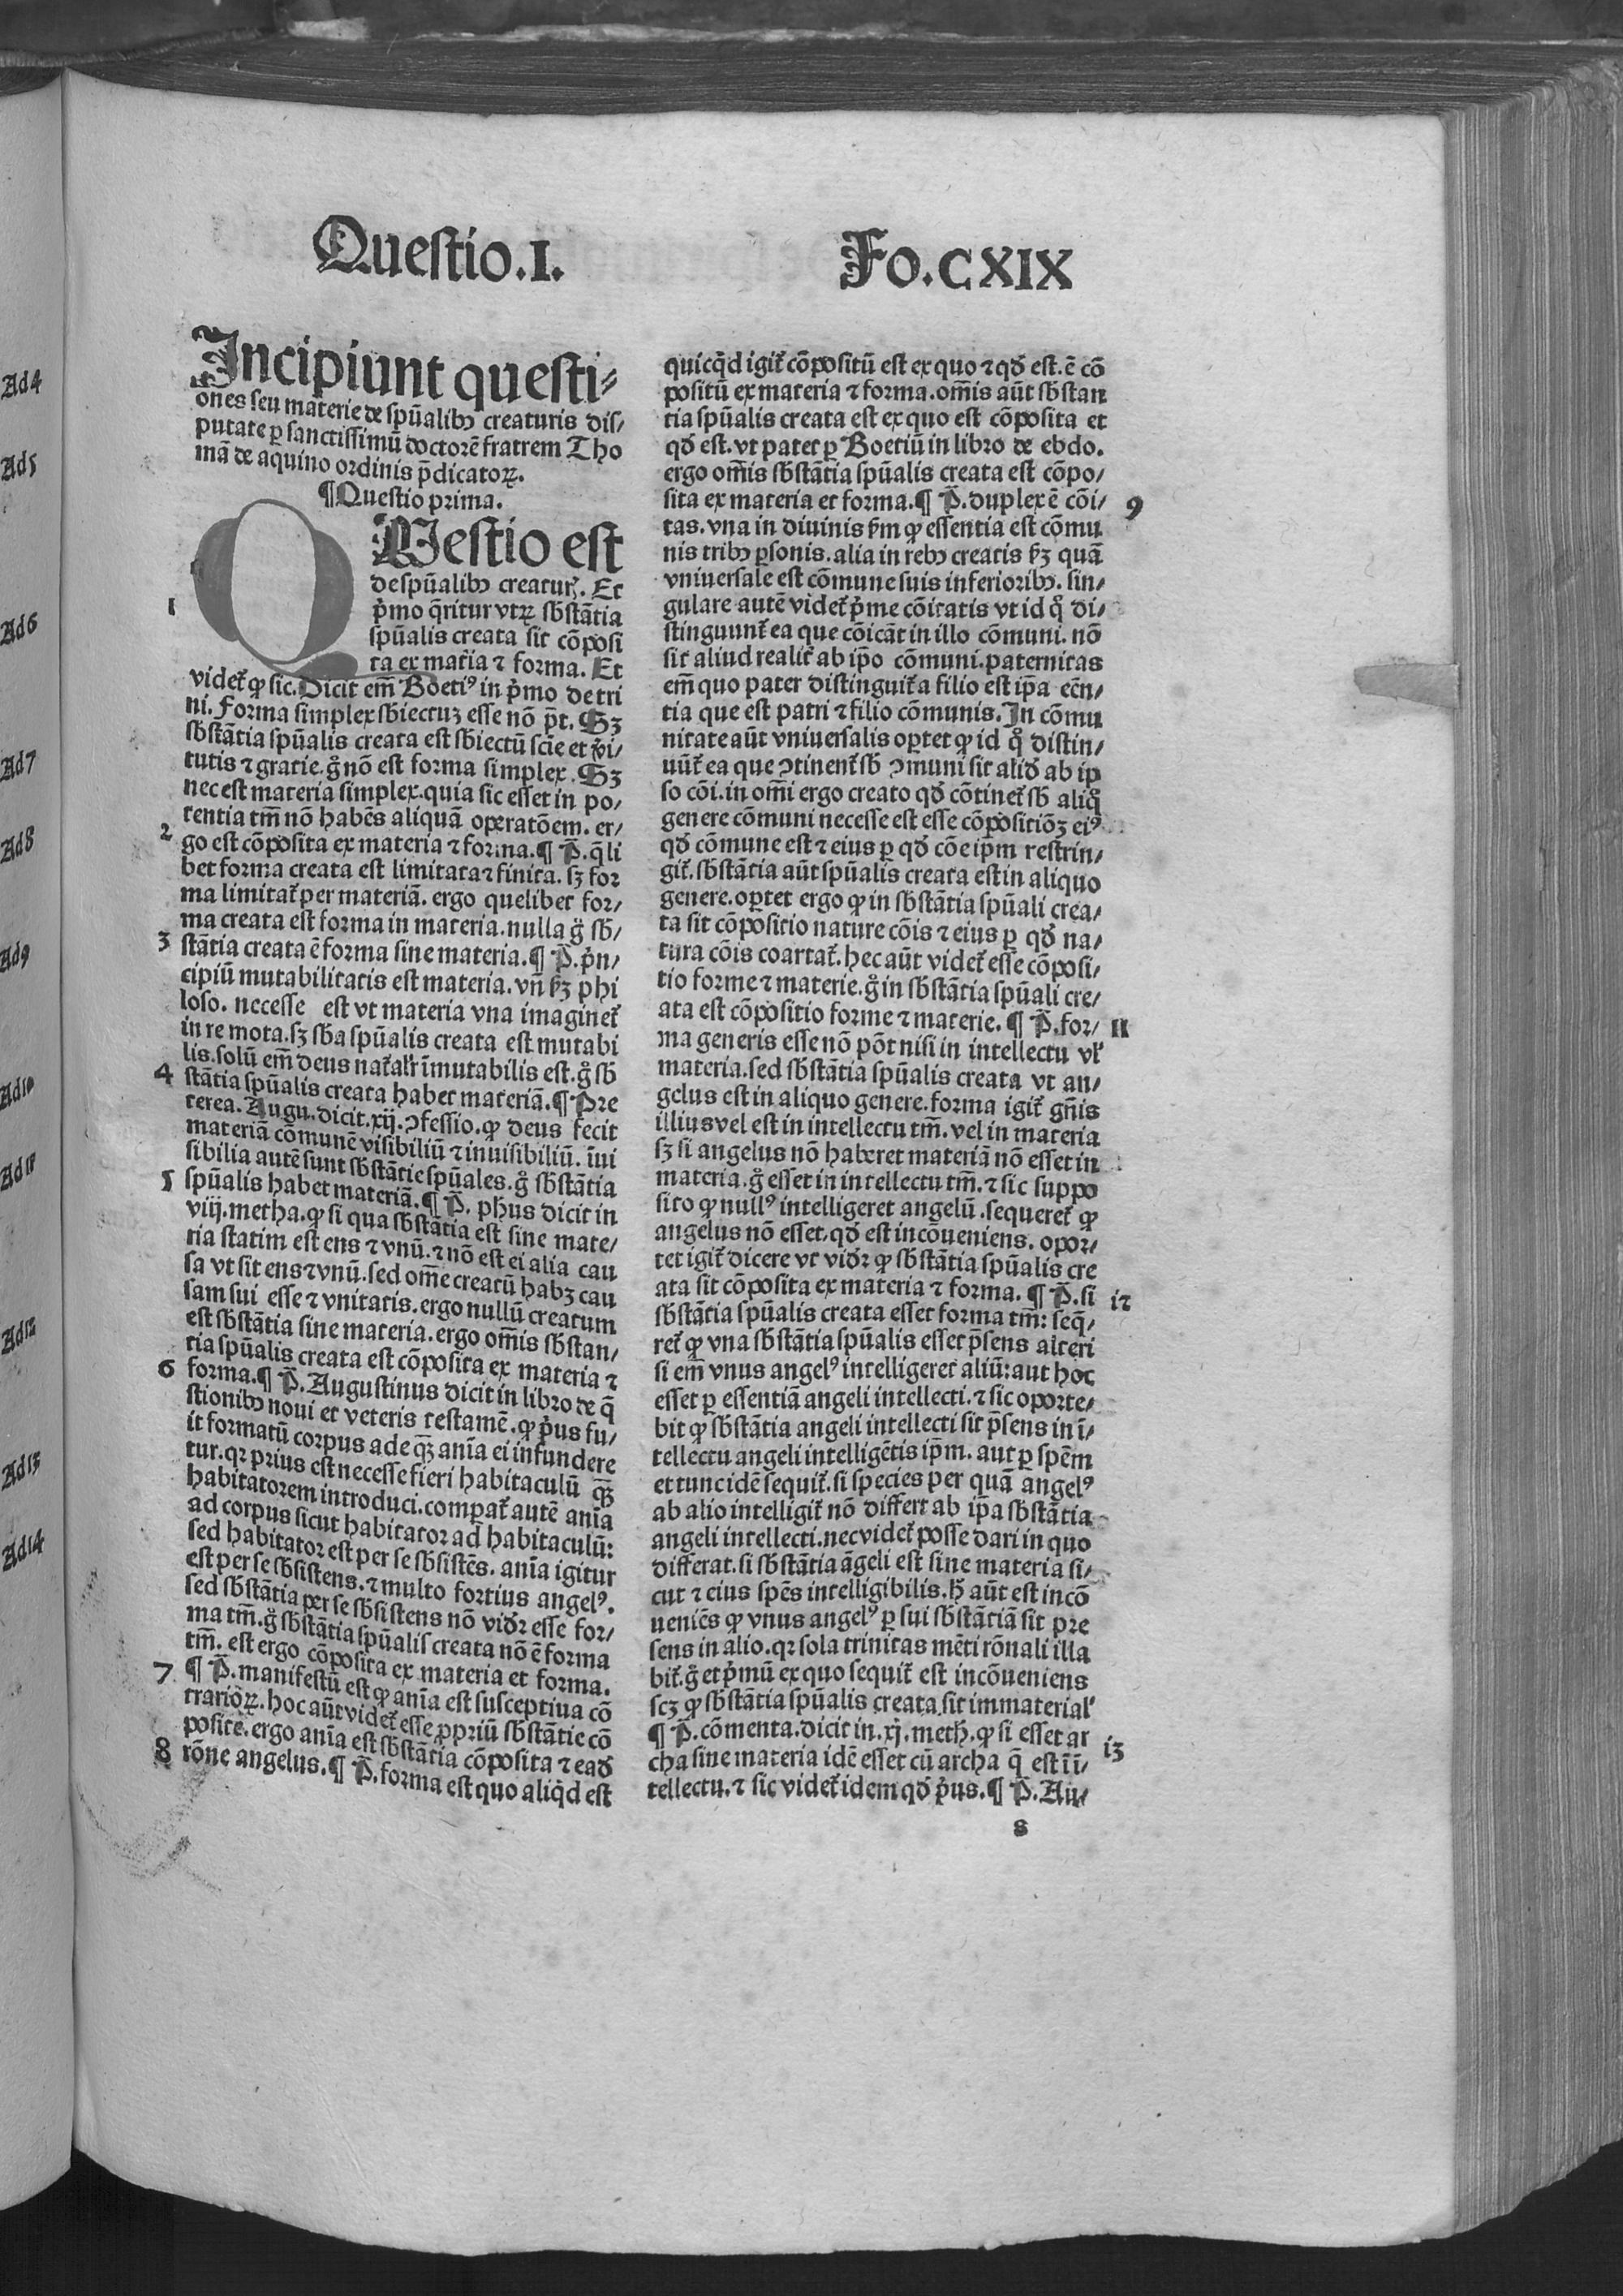 Questio.I.
Fo.CXIX
Incipiunt questi⸗
ones seu materie de spũalibꝰ creaturis dis/
putate ꝑ sanctissimũ doctorẽ fratrem Tho
mã de aquino ordinis p̄dicatoꝝ.
¶Questio prima.
QVestio est
de spũalibꝰ creaturꝭ. Et
1
pͥmo q̄ritur vtꝝ sb̄stãtia
spũalis creata sit cõposi
ta ex mat̃ia ⁊ forma. Et
videt̃ ꝙ sic. Dicit em̃ Boetiꝰ in pͥmo de tri
ni. Forma simplex sb̄iectuʒ esse nõ p̄t. Sʒ
sb̄stãtia spũalis creata est sb̄iectũ scĩe et v̓i/
tutis ⁊ gratie. g̊ nõ est forma simplex. Sʒ
nec est materia simplex. quia sic esset in po/
tentia tm̃ nõ habẽs aliquã operatõem. er/
2
go est cõposita ex materia ⁊ forma. ¶ P̄. q̄li
bet forma creata est limitata ⁊ finita. sʒ for
ma limitat̃ per materiã. ergo quelibet for/
ma creata est forma in materia. nulla g̊ sb̄/
3
stãtia creata ẽ forma sine materia. ¶ P̄. pͥn/
cipiũ mutabilitatis est materia. vñ ẜʒ phi
loso. necesse est vt materia vna imaginet̃
in re mota. sʒ sb̄a spũalis creata est mutabi
lis. solũ em̃ deus nat̃alr̃ ĩmutabilis est. g̊ sb̄
4
stãtia spũalis creata habet materiã. ¶ Pre
terea. Augu. dicit. xij. ꝯfessio. ꝙ deus fecit
materiã cõmunẽ visibiliũ ⁊ inuisibiliũ. ĩui
sibilia autẽ sunt sb̄stãtie spũales. g̊ sb̄stãtia
5
spũalis habet materiã. ¶ P̄. ph̃us dicit in
viij. metha. ꝙ si qua sb̄stãtia est sine mate/
ria statim est ens ⁊ vnũ. ⁊ nõ est ei alia cau
sa vt sit ens ⁊ vnũ. sed om̃e creatũ habʒ cau
sam sui esse ⁊ vnitatis. ergo nullũ creatum
est sb̄stãtia sine materia. ergo om̃is sb̄stan/
tia spũalis creata est cõposita ex materia ⁊
6
forma. ¶ P̄. Augustinus dicit in libro de q̄
stionibꝰ noui et veteris testamẽ. ꝙ pͥus fu/
it formatũ corpus ade q̄ʒ anĩa ei infundere
tur. qꝛ prius est necesse fieri habitaculũ q̄ʒ
habitatorem introduci. compat̃ autẽ anĩa
ad corpus sicut habitator ad habitaculũ:
sed habitator est per se sb̄sistẽs. anĩa igitur
est per se sb̄sistens. ⁊ multo fortius angelꝰ.
sed sb̄stãtia per se sb̄sistens nõ vid̃r esse for/
ma tm̃. g̊ sb̄stãtia spũalis creata nõ ẽ forma
tm̃. est ergo cõposita ex materia et forma.
7
¶ P̄. manifestũ est ꝙ anĩa est susceptiua cõ
trarioꝝ. hoc aũt videt̃ esse ꝓpriũ sb̄stãtie cõ
posite. ergo anĩa est sb̄stãtia cõposita ⁊ eadẽ
8
rõne angelus. ¶ P̄. forma est quo aliqͥd est
quicqͥd igit̃ cõpositũ est ex quo ⁊ qd̃ est. ẽ cõ
positũ ex materia ⁊ forma. om̃is aũt sb̄stan
tia spũalis creata est ex quo est cõposita et
qd̃ est. vt patet ꝑ Boetiũ in libro de ebdo.
ergo om̃is sb̄stãtia spũalis creata est cõpo/
9
sita ex materia et forma. ¶ P̄. duplex ẽ cõi/
tas. vna in diuinis ẜm ꝙ essentia est cõmu
nis tribꝰ ꝑsonis. alia in rebꝰ creatis ẜʒ quã
vniuersale est cõmune suis inferioribꝰ. sin/
gulare autẽ videt̃ pͥme cõitatis vt id qͦ di/
stinguunt̃ ea que cõicãt in illo cõmuni. nõ
sit aliud realit̃ ab ip̃o cõmuni. paternitas
em̃ quo pater distinguit̃ a filio est ip̃a eẽn/
tia que est patri ⁊ filio cõmunis. In cõmu
nitate aũt vniuersalis oꝑtet ꝙ id qͦ distin/
uũt̃ ea que ꝯtinent̃ sb̄ ꝯmuni sit alid̃ ab ip̃
so cõi. in om̃i ergo creato qd̃ cõtinet̃ sb̄ aliqͦ
genere cõmuni necesse est esse cõpositiõʒ eiꝰ
qd̃ cõmune est ⁊ eius ꝑ qd̃ cõe ip̃m restrin/
git̃. sb̄stãtia aũt spũalis creata est in aliquo
genere. oꝑtet ergo ꝙ in sb̄stãtia spũali crea/
ta sit cõpositio nature cõis ⁊ eius ꝑ qd̃ na/
tura cõis coartat̃. hec aũt videt̃ esse cõposi/
tio forme ⁊ materie. g̊ in sb̄stãtia spũali cre/
11
ata est cõpositio forme ⁊ materie. ¶ P̄. for/
ma generis esse nõ põt nisi in intellectu vl̃
materia. sed sb̄stãtia spũalis creata vt an/
gelus est in aliquo genere. forma igit̃ gñis
illius vel est in intellectu tm̃. vel in materia
sʒ si angelus nõ haberet materiã nõ esset in
materia. g̊ esset in intellectu tm̃. ⁊ sic suppo
sito ꝙ nullꝰ intelligeret angelũ. sequeret̃ ꝙ
angelus nõ esset. qd̃ est incõueniens. opor/
tet igit̃ dicere vt vid̃r ꝙ sb̄stãtia spũalis cre
12
ata sit cõposita ex materia ⁊ forma. ¶ P̄. si
sb̄stãtia spũalis creata esset forma tm̃: seq̄/
ret̃ ꝙ vna sb̄stãtia spũalis esset p̄sens alteri
si em̃ vnus angelꝰ intelligeret aliũ: aut hoc
esset ꝑ essentiã angeli intellecti. ⁊ sic oporte/
bit ꝙ sb̄stãtia angeli intellecti sit p̄sens in ĩ/
tellectu angeli intelligẽtis ip̃m. aut ꝑ spẽm
et tunc idẽ sequit̃. si species per quã angelꝰ
ab alio intelligit̃ nõ differt ab ip̃a sb̄stãtia
angeli intellecti. nec videt̃ posse dari in quo
differat. si sb̄stãtia ãgeli est sine materia si/
cut ⁊ eius spẽs intelligibilis. h̃ aũt est incõ
ueniẽs ꝙ vnus angelꝰ ꝑ sui sb̄stãtiã sit pre
sens in alio. qꝛ sola trinitas mẽti rõnali illa
bit̃. g̊ et pͥmũ ex quo sequit̃ est incõueniens
scʒ ꝙ sb̄stãtia spũalis creata sit immaterial̃
13
¶ P̄. cõmenta. dicit in. xj. meth. ꝙ si esset ar
cha sine materia idẽ esset cũ archa q̄ est ĩ ĩ/
tellectu. ⁊ sic videt̃ idem qd̃ pͥus. ¶ P̄. Au/
s
Ad4
Ad5
Ad6
Ad7
Ad8
Ad9
Ad10
Ad11
Ad12
Ad13
Ad14